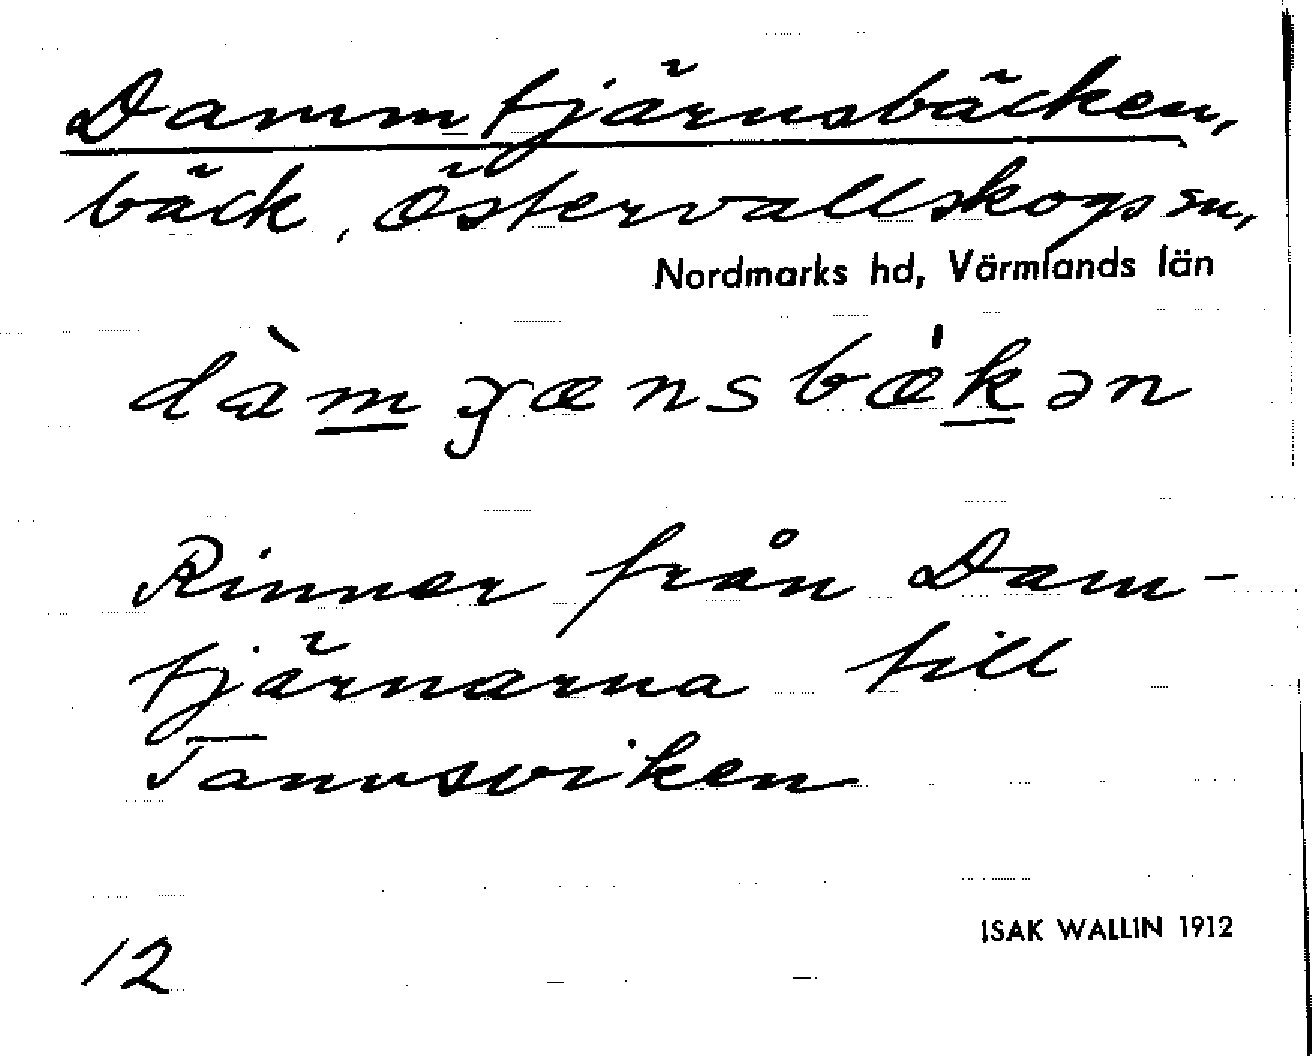 Dammtjärnsbäcken,
bäck, Östervallskogs sn,
Nordmarks hd, Värmlands län
dàm̲ɟænsbæ̍k̲ən
Rinner från Dam-
tjärnarna till
Tannsviken
ISAK WALLIN 1912
12